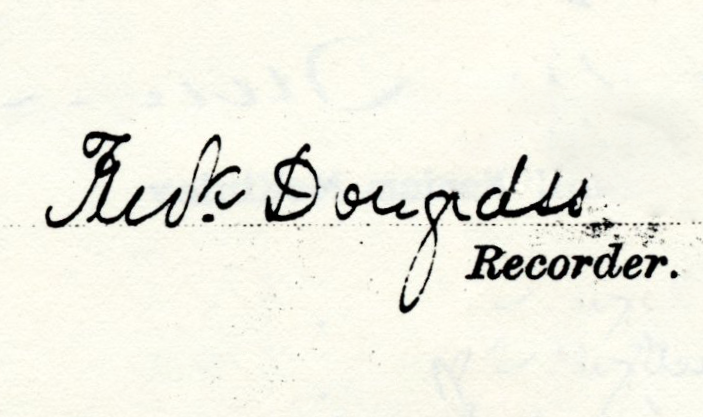 Fredk Douglass
Recorder.